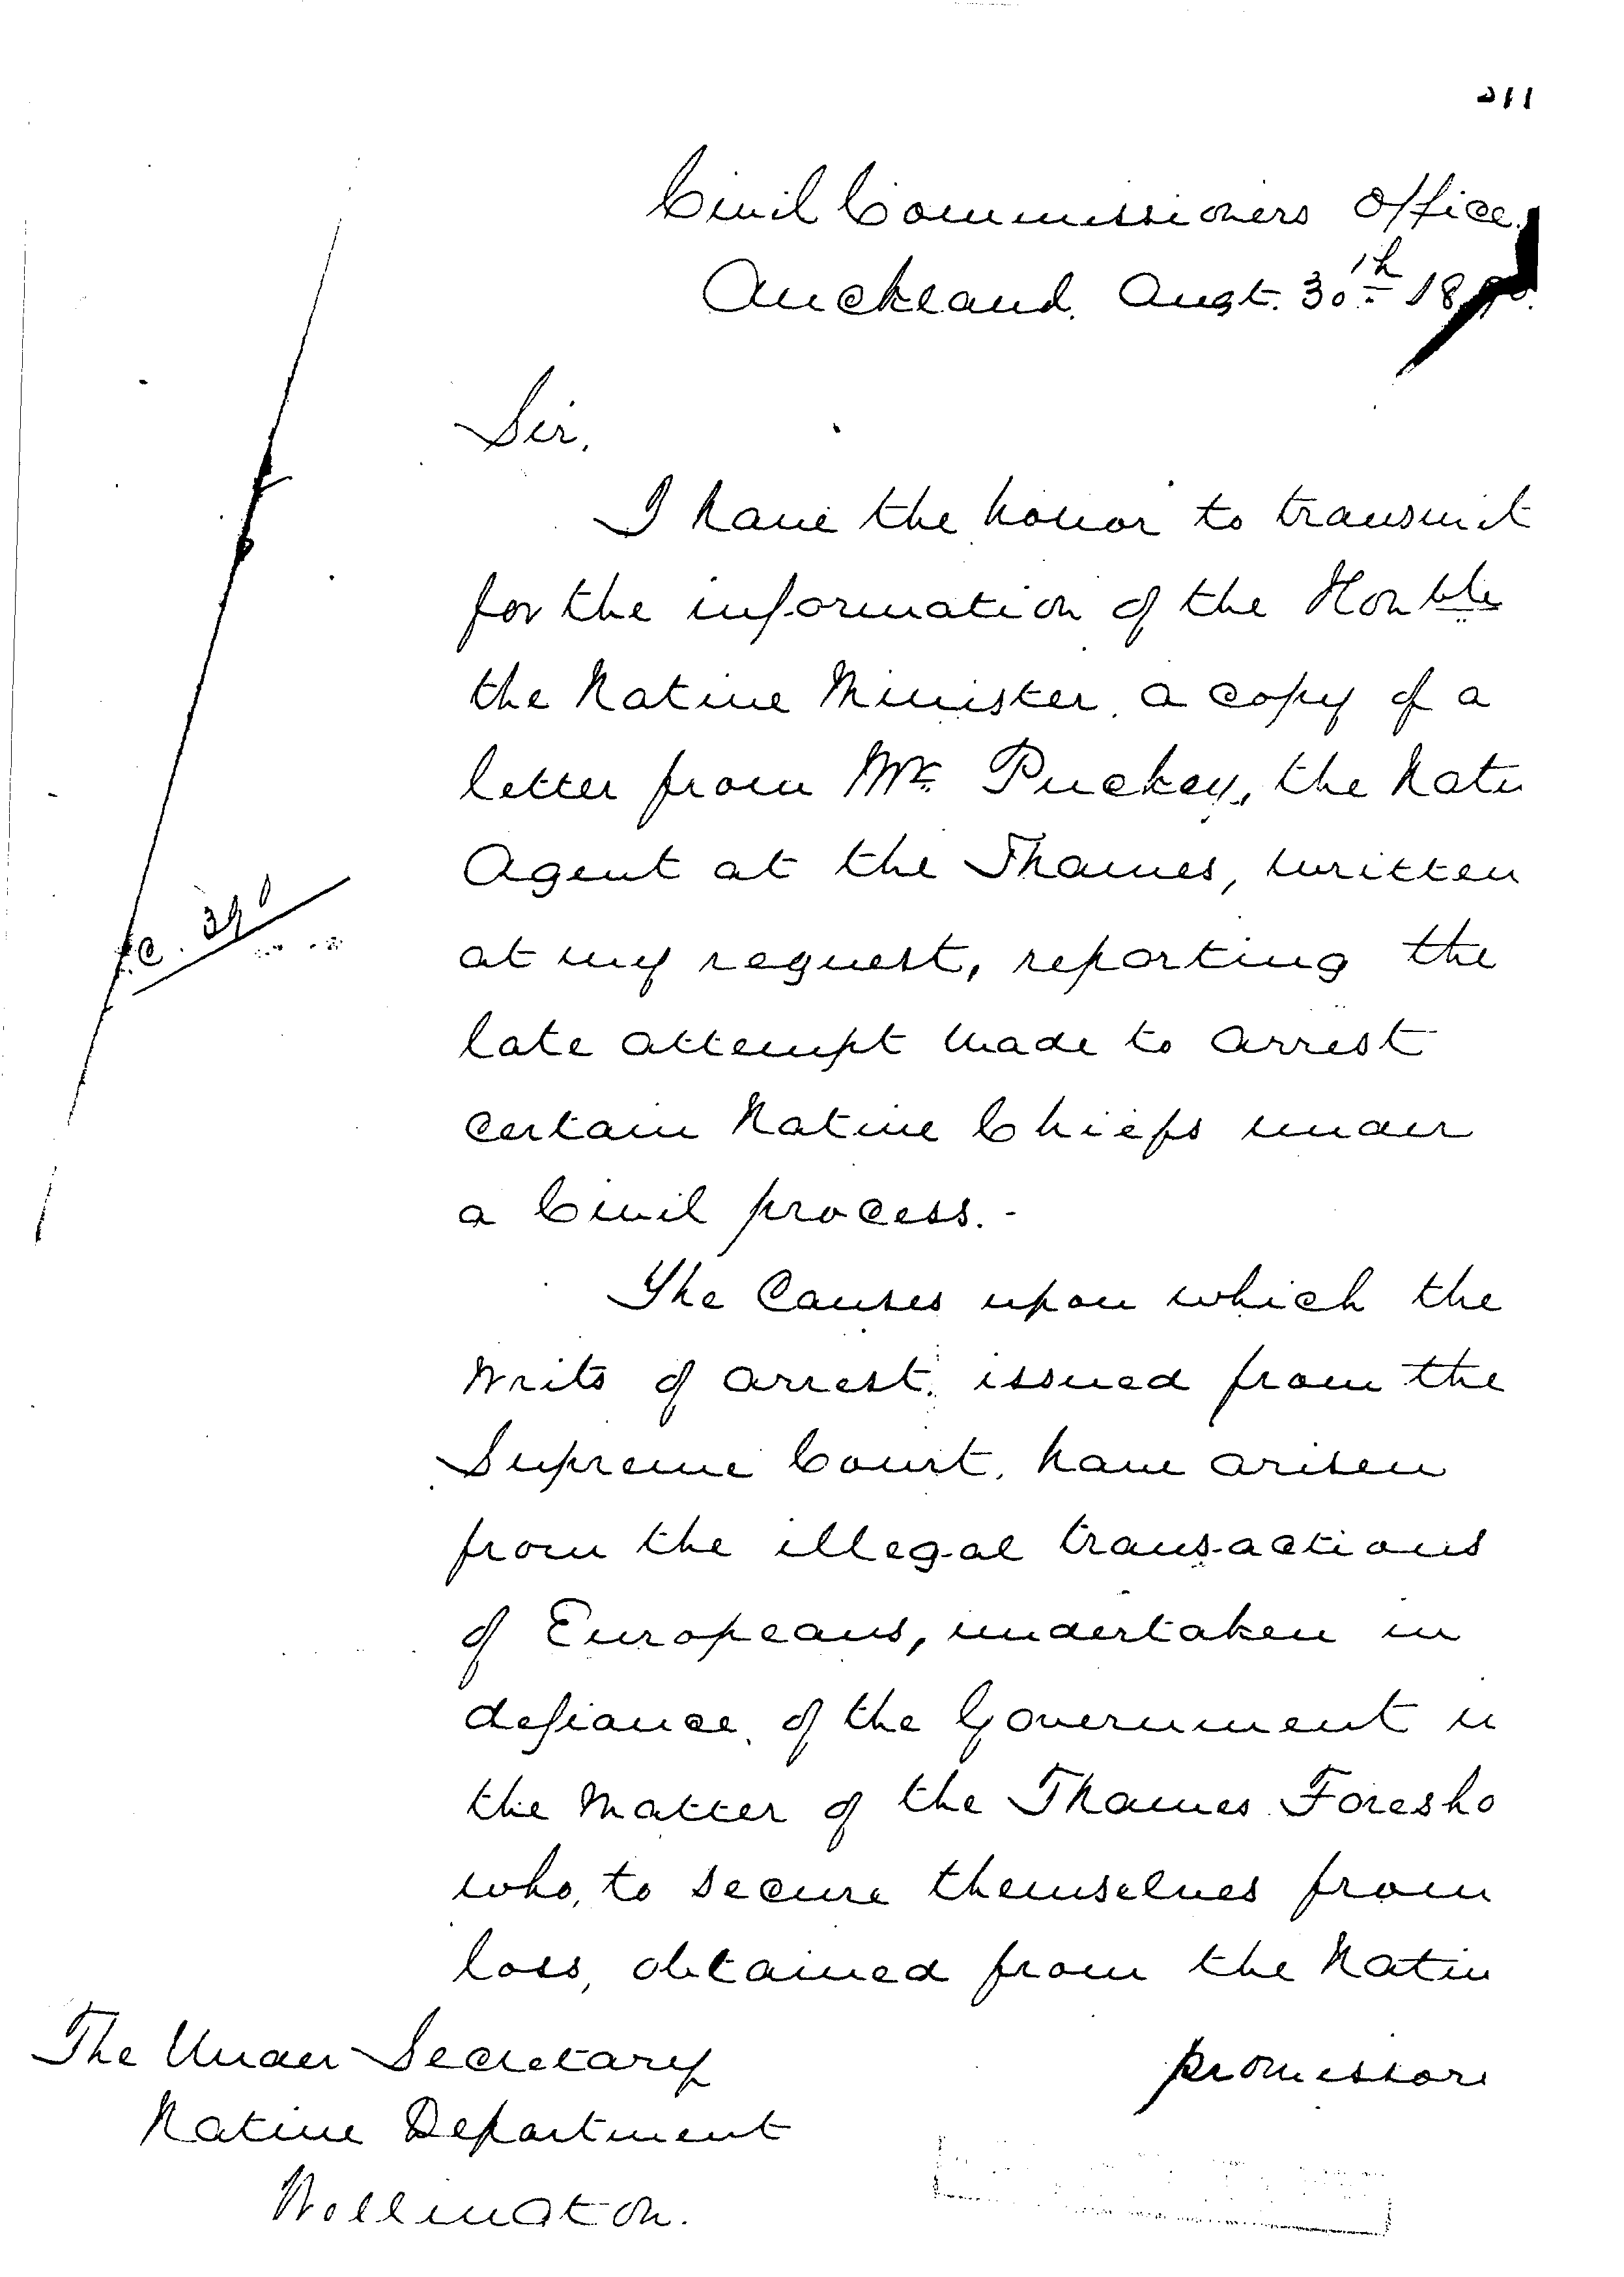 211
Civil Commissioners Office.
Auckland. Augt. 30th 18
Sir,
I have the honor to transmit
for the information of the Honble
the Native Minister, a copy of a
letter from Mr. Puckey, the Nativ
Agent at the Thames, written
at my request, reporting the
late attempt made to arrest
certain Native Chiefs under
a Civil process. -
The Causes upon which the
Writs of arrest, issued from the
Supreme Court, have arisen
from the illegal transactions
of Europeans, undertaken in
defiance, of the Government in
the Matter of the Thames Foresho
who, to secure themselves from
loss, obtained from the Nativ
promissor
The Under Secretary
Native Department
Wellington.